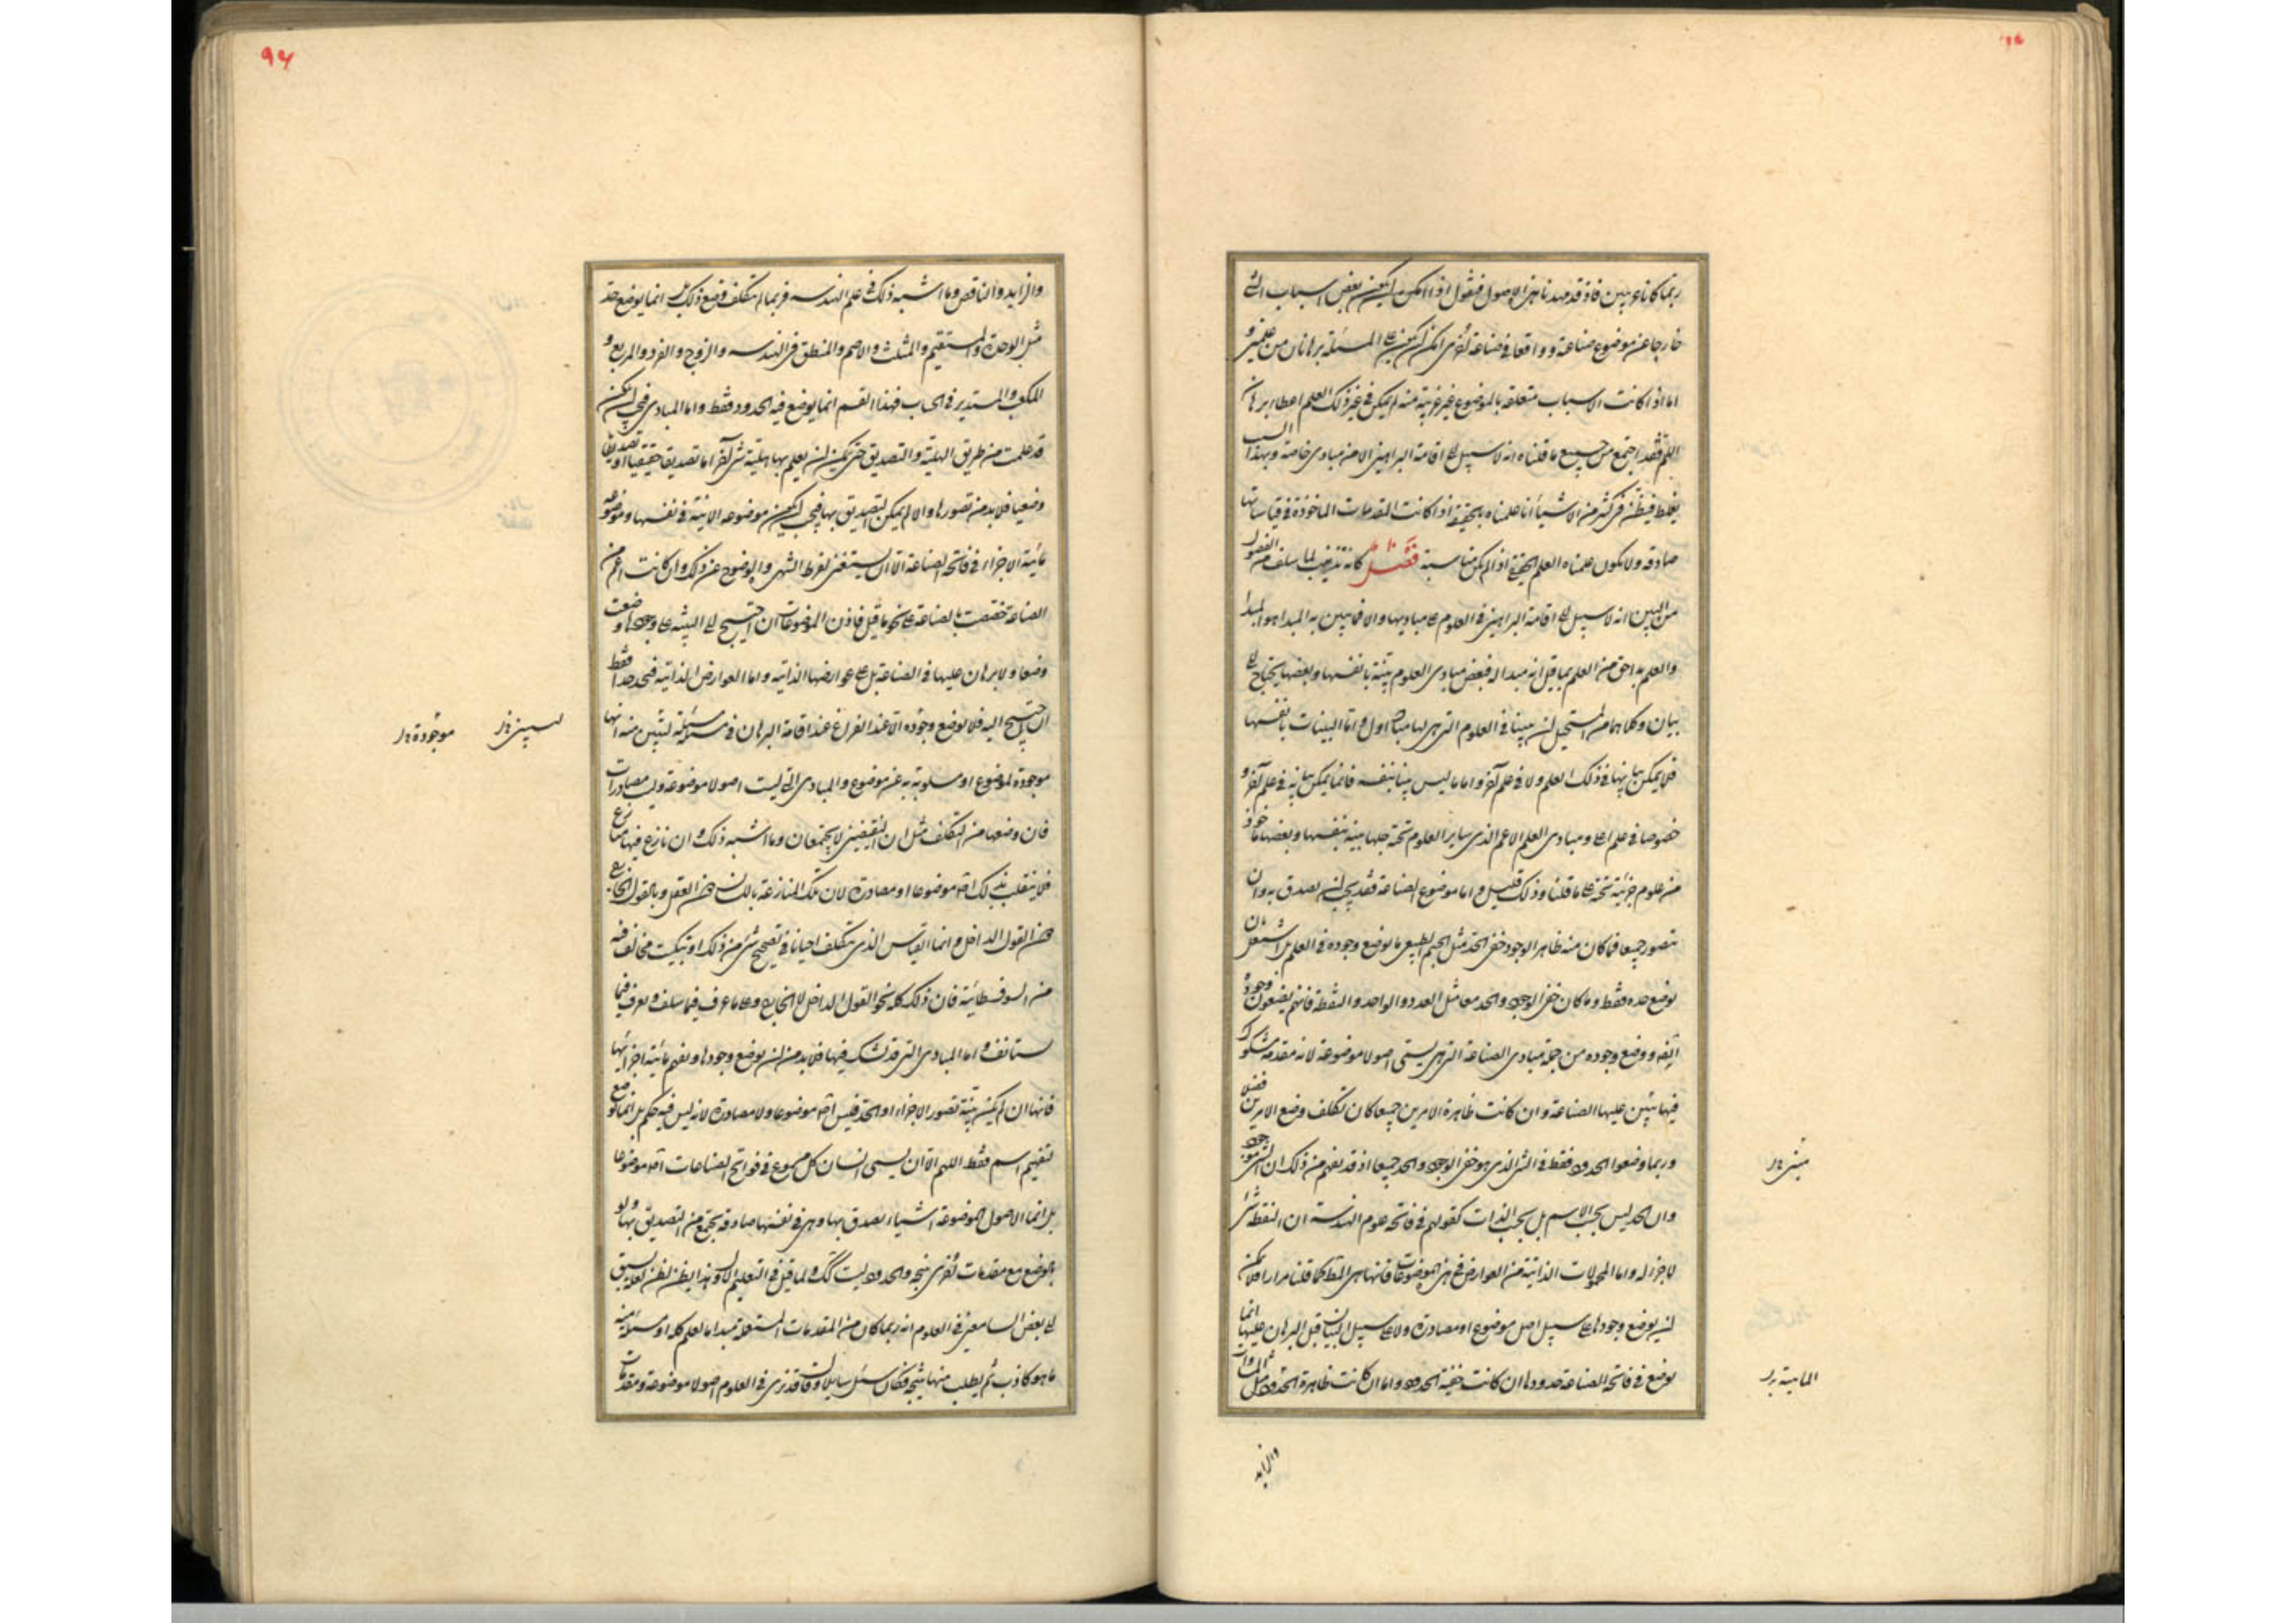 ربما كانا عريين فاذ قد مهدنا هذه الاصول فنقول اذا امكن ان يكون بعض اسباب الشئ
خارجا عن موضوع صناعة و واقعا فى صناعة اخرى امكن ان يكون على المسئلة برهانان من علمين و
اما اذا كانت الاسباب متعلقة بالموضوع غير غريبة منه لم يمكن فى غير ذلك العلم اعطاء برهان
اللم فقد اجتمع من جميع ما قلناه انه لا سبيل الى اقامة البراهين الا من مبادى خاصة وبهذا السبب
يغلط فيظن فى كثير من الاشياء انا علمناه بالحقيقة اذا كانت المقدمات الماخوذة فى قياساتها
صادقة ولا يكون علمناه العلم الحقيقى اذا لم يكن مناسبة فصل كانه تذنيب لما سلف من الفصول
من البين انه لا سبيل الى اقامة البراهين فى العلوم على مباديها والا فما يبين به المبدا هو المبدا
والعلم به احق من العلم بما قيل انه مبدا له فبعض مبادى العلوم بينة بانفسها وبعضها يحتاج الى
بيان وكلاهما من المستحيل ان يبينا فى العلوم التى هى لها مباد اول اما البينات بانفسها
فلا يمكن بيانها فى ذلك العلم ولا فى علم آخر واما ما ليس بينا بنفسه فانما يمكن بيانه فى علم آخر و
خصوصا فى علم اعلى ومبادى العلم الاعم الذى ساير العلوم تحته جلها بينة بنفسها وبعضها ماخوذ
من علوم جزئية تحته على ما قلنا وذلك قليل واما موضوع الصناعة فقد يجب ان يصدق به وان
يتصور جميعا فما كان منه ظاهر الوجود خفى الحد مثل الجسم الطبيعى ما يوضع وجوده فى العلم بل اشتغل بان
يوضع حده فقط وما كان خفى الوجود والحد معا مثل العدد والواحد والنقطة فانهم يضعون وجوده
ايضا ووضع وجوده من جملة مبادى الصناعة التى هى يسمى اصولا موضوعة لانه مقدمة مشكوك
فيها يبتنى عليها الصناعة وان كانت ظاهرة الامرين جميعا كان تكلف وضع الامرين فضلا
وربما وضعوا الحدود فقط فى الشئ الذى هو خفى الوجود والحد جميعا اذ قد يفهم من ذلك ان الشئ موجود
وان الحد ليس بحسب الاسم بل بحسب الذات كقولهم فى فاتحة علوم الهندسة ان النقطة شئ
لا جزء له واما المحمولات الذاتية من العوارض فى هذه الموضوعات فانها هى المط كما قلنا مرارا فلا يمكن
ان يوضع وجودها على سبيل اصل موضوع او مصادرة ولا على سبيل البيان قبل البرهان عليها انما
يوضع فى فاتحة الصناعة حدودها ان كانت خفية الحدود واما ان كانت ظاهرة الحدود مثل المساواة
والزايد
مبنى
المباينة
٩٤
والزايد والناقص وما اشبه ذلك فى علم الهندسه فربما لم يتكلف وضع ذلك بل انما يوضع حد
مثل الوحدة والمستقيم والمثلث والاصم والمنطق فى الهندسه والزوج والفرد والمربع و
المكعب والمستدير فى الحساب فهذا القسم انما يوضع فيه الحدود فقط واما المبادى فيجب ان يكون
قد علمت من طريق الهلية والتصديق حتى يمكن ان يعلم بها هلية شئ آخر اما تصديقا حقيقيا او تصديقا
وضعيا فلا بد من تصورها والا لم يمكن التصديق بها فيجب ان يكون موضوعة الانية فى نفسها وموضوعة
مائية الاجزاء فى فاتحة الصناعة الا ان يستغنى لفرط الشهرة والوضوح عن ذلك وان كانت اعم من
الصناعة خصصت بالصناعة على نحو ما قيل فاذن الموضوعات ان احتيج الى البينة على وجودها وضعت
وضعا ولا برهان عليها فى الصناعة بل على عوارضها الذاتية واما العوارض الذاتية فتحد حدا فقط
ان احتيج اليه فلا يوضع وجوده الا عند الفراغ عند اقامة البرهان فى مسئلة لتبين منه انها
موجودة لموضوع او مسلوبة به عن موضوع والمبادى التى ليست اصولا موضوعة وليست مصادرات
فان وضعها من التكلف مثل ان النقيضين لا يجتمعان وما اشبه ذلك وان نازع فيها منازع
فلا ينقلب بذلك اصلا موضوعا او مصادرة لان تلك المنازعة باللسان دون العقل وبالقول الخارج
دون القول الداخل وانما القياس الذى يتكلف احيانا فى تصحيح شئ من ذلك او تبكيت مخالف فيه
من السوفسطائية فان ذلك كله نحو القول الداخل لا الخارج وعلى ما عرف فيما سلف ويعرف فيما
يستانف واما المبادى التى قد تشك فيها فلا بد من ان يوضع وجودها ويفهم مائية اجزائها
فانها ان لم يكن بينة تصور الاجزاء او الحد فليس اصلا موضوعا ولا مصادرة لانه ليس فيه حكم بل انما يوضع
لتفهيم اسم فقط اللهم الا ان يسمى انسان كل مسموع فى فواتح الصناعات اصلا موضوعا
بل انما الاصول الموضوعة اشياء يصدق بها وهى فى نفسها صادقة يجتمع من التصديق بها ولو
بالوضع مع مقدمات اخرى نتيجة والحدود ليست كذلك ولما قيل فى التعليم الاول هذا يظن لظن لعله يسبق
الى بعض السامعين فى العلوم انه ربما كان من المقدمات المستعملة مبدا ما لعلم كله او مسئلة منه
ما هو كاذب ثم يطلب منها نتيجة فكان سئل سايل وقال قد نرى فى العلوم اصولا موضوعة ومقدمات
ليبين
موجودة